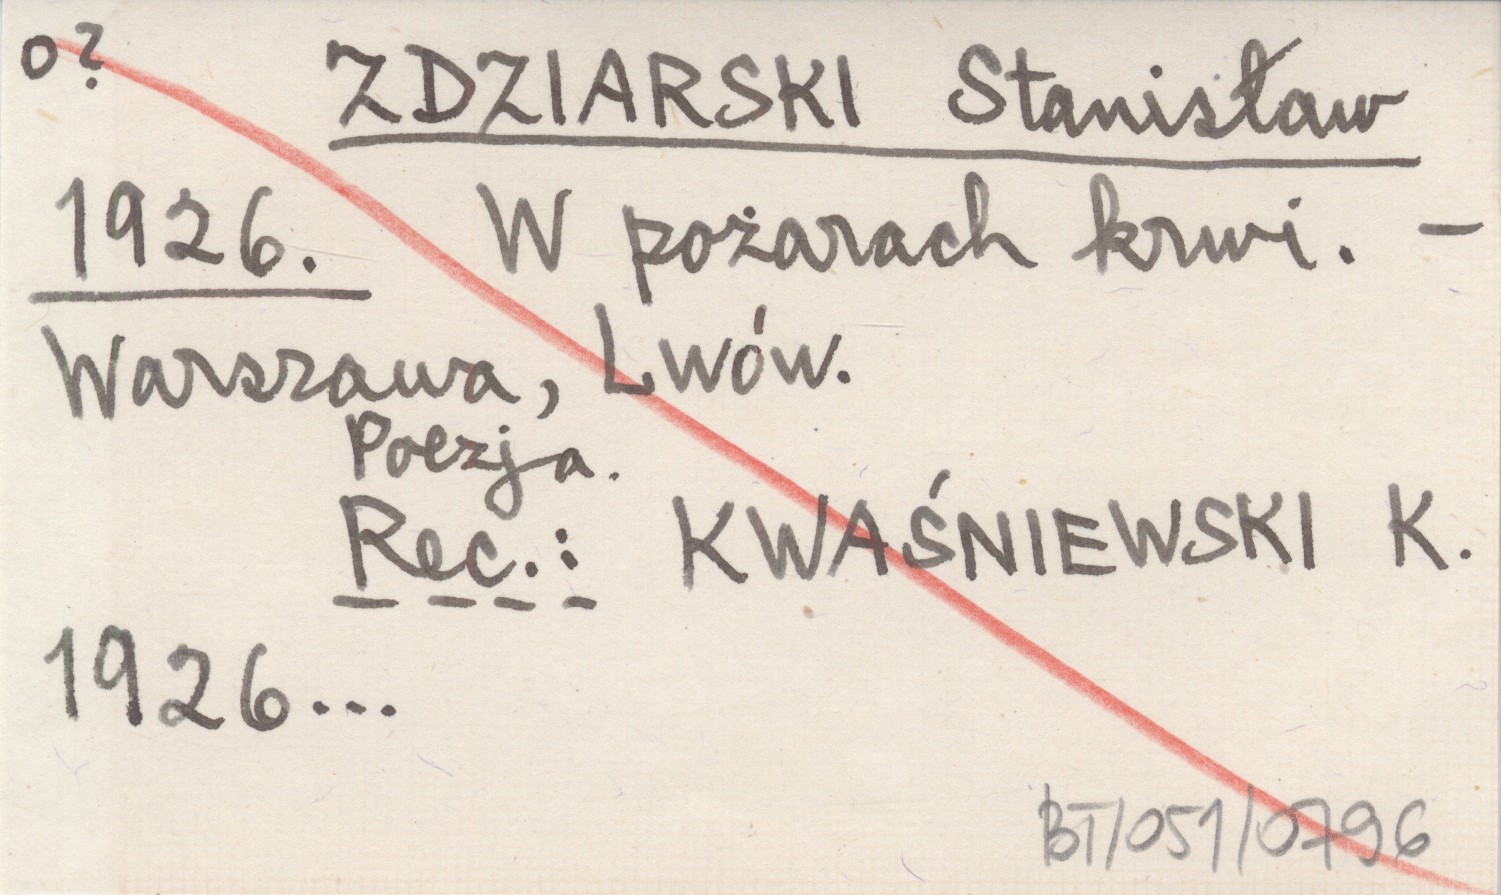 o?
ZDZIARSKI Stanisław
1926. W pożarach krwi. –
Warszawa, Lwów.
Poezja.
Rec.: KWAŚNIEWSKI K.
1926...
BT/051/0796